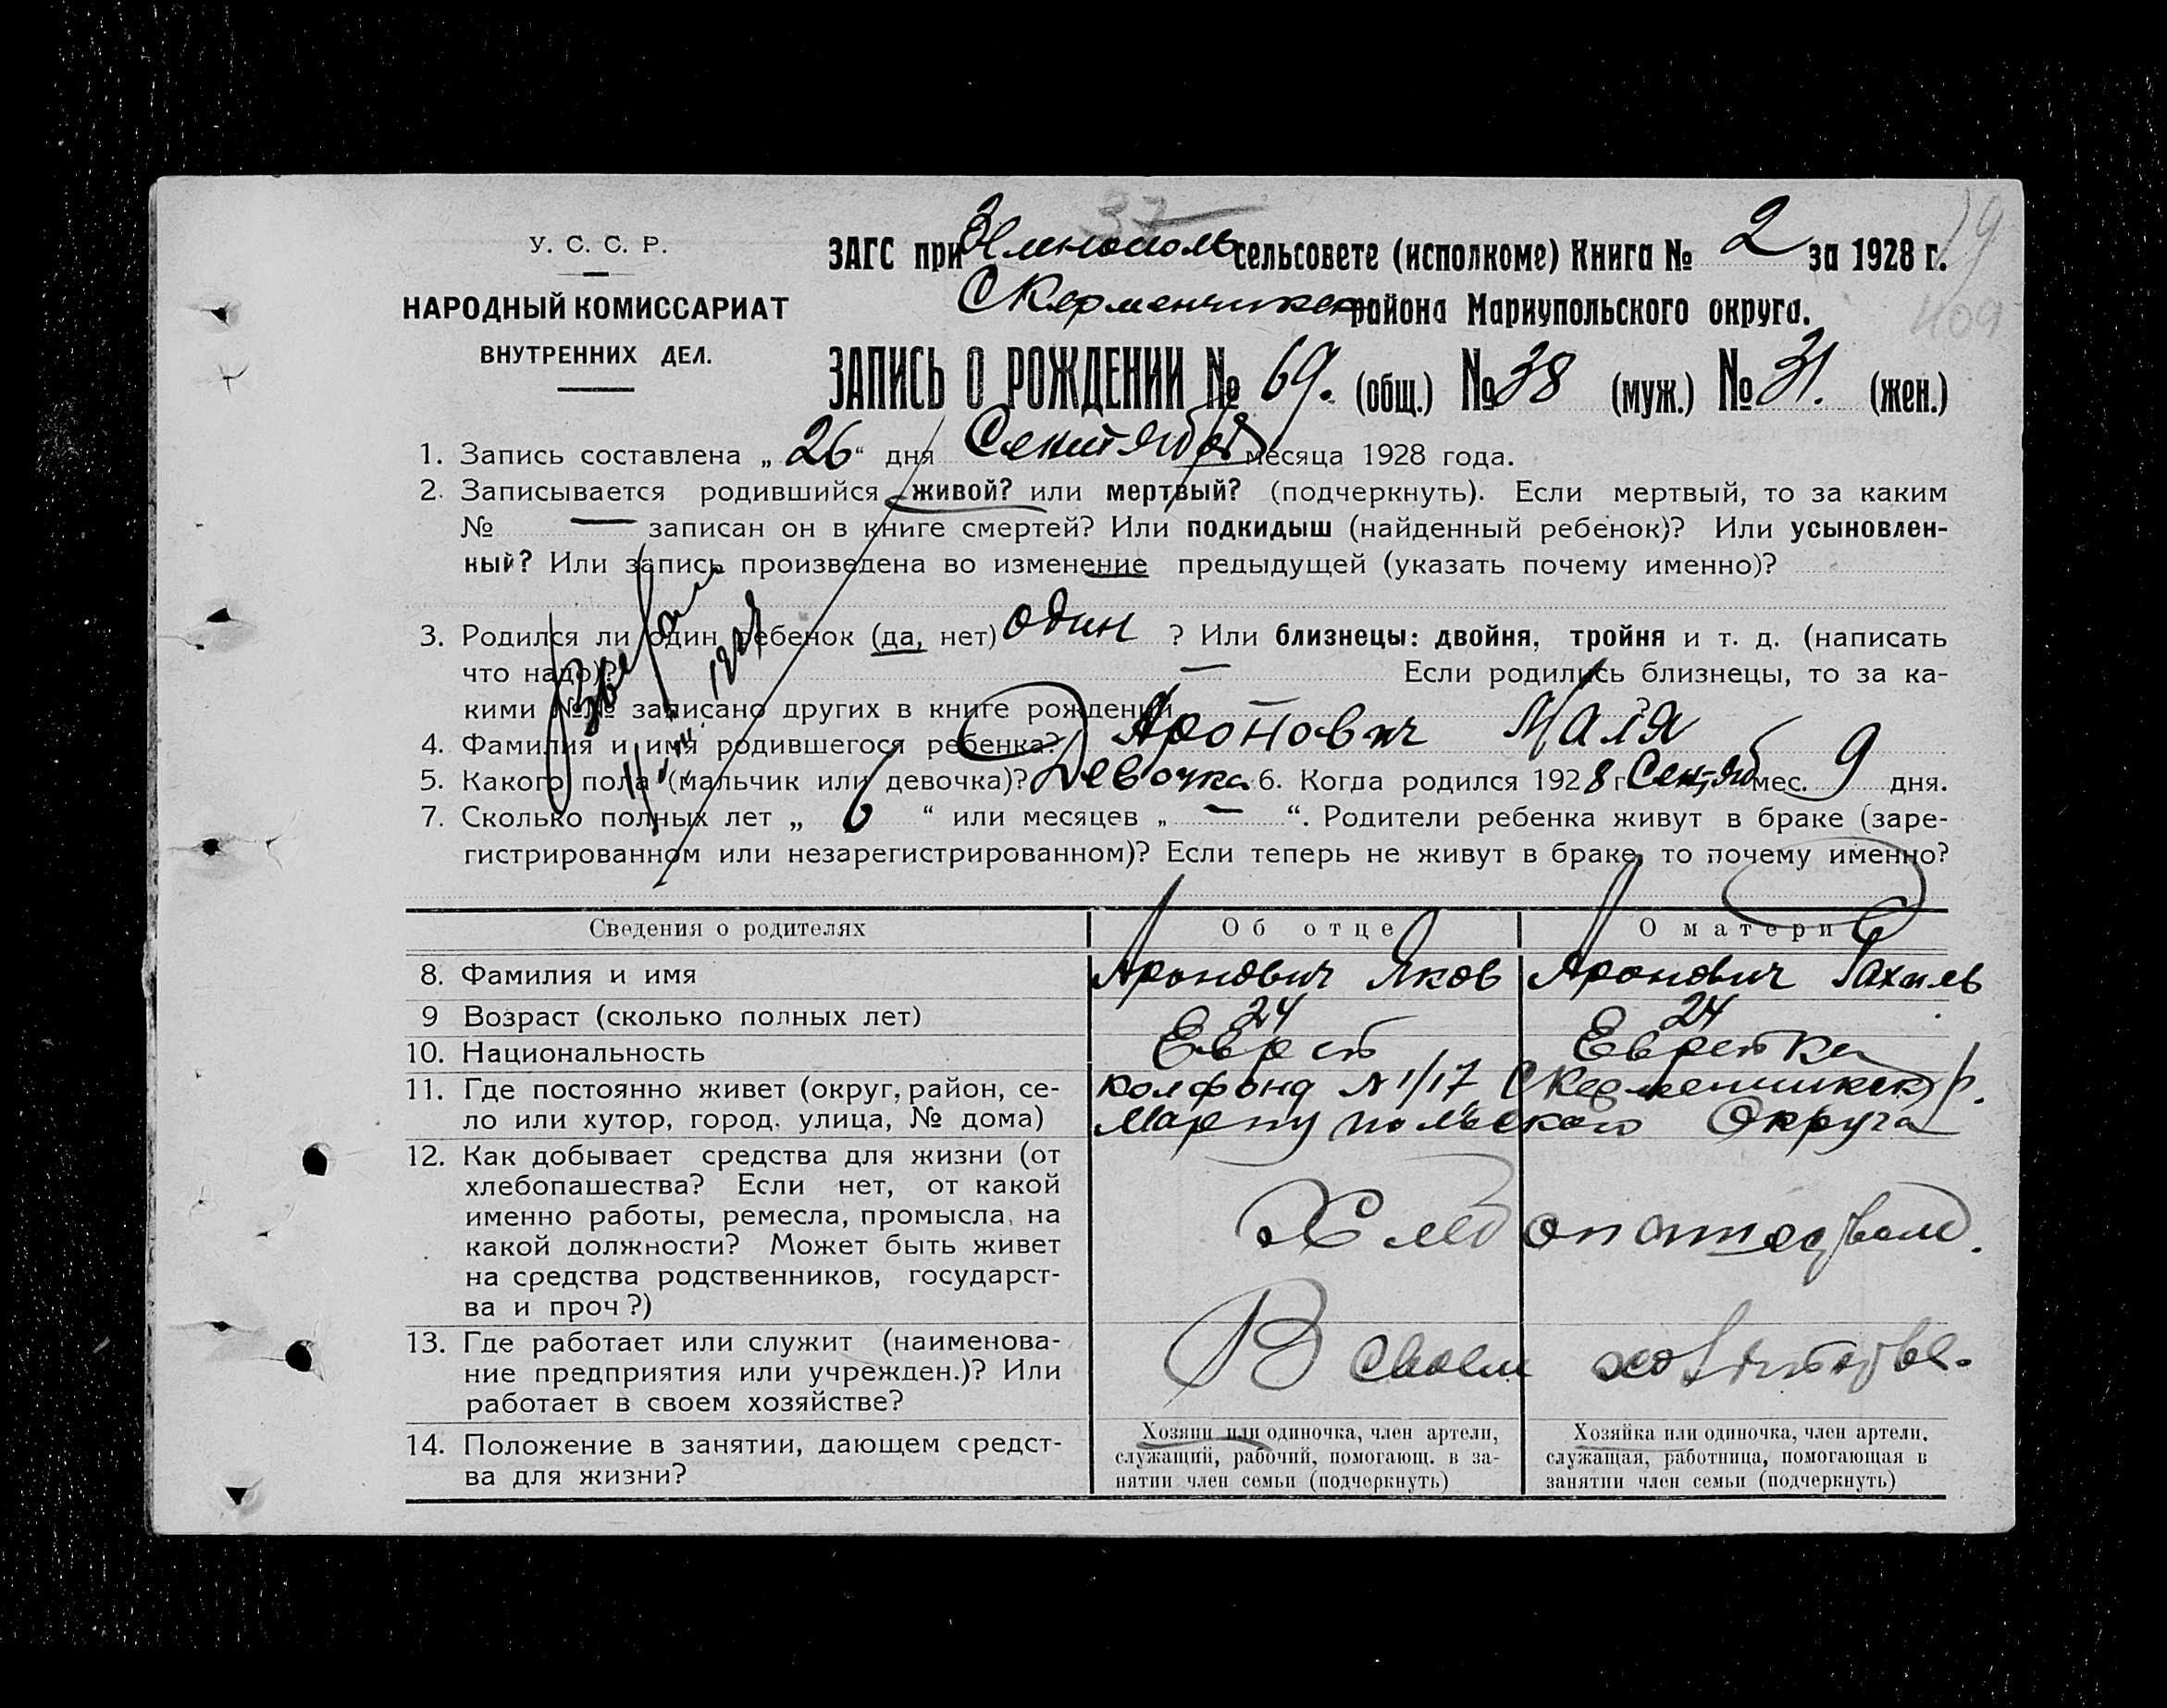 37
19
У. С. С. Р.
ЗАГС при Злинополь сельсовете (исполкоме) Книга № 2 за 1928 г.
НАРОДНЫЙ КОМИССАРИАТ
района Мариупольского округа.
409
ВНУТРЕННИХ ДЕЛ.
ЗАПИСЬ О РОЖДЕНИИ № 69. (общ.) № 38 (муж.) № 31. (жен.)
1. Запись составлена „ 26 “ дня Сентября месяца 1928 года.
2. Записывается родившийся живой? или мертвый? (подчеркнуть). Если мертвый, то за каким
№ — записан он в книге смертей? Или подкидыш (найденный ребенок)? Или усыновлен-
ный? Или запись произведена во изменение предыдущей (указать почему именно)?
3. Родился ли один ребенок (да, нет) один ? Или близнецы: двойня, тройня и т. д. (написать
что надо)? — Если родились близнецы, то за ка-
кими №№ записано других в книге рождений — ?
4. Фамилия и имя родившегося ребенка? Аронович Маля
5. Какого пола (мальчик или девочка)? Девочка 6. Когда родился 1928 г Сентяб мес. 9 дня.
7. Сколько полных лет „ 6 “ или месяцев „ — “. Родители ребенка живут в браке (заре-
гистрированном или незарегистрированном)? Если теперь не живут в браке, то почему именно?
Сведения о родителях Об отце О матери
8. Фамилия и имя Аронович Яков Аронович Рахиль
9 Возраст (сколько полных лет) 24 24
10. Национальность Еврей Еврейка
11. Где постоянно живет (округ, район, се- Колфонд № 1/17 р.
ло или хутор, город, улица, № дома) Мариупольского Округа
12. Как добывает средства для жизни (от
хлебопашества? Если нет, от какой
именно работы, ремесла, промысла, на Хлебопашеством.
какой должности? Может быть живет
на средства родственников, государст-
ва и проч?)
13. Где работает или служит (наименова-
ние предприятия или учрежден.)? Или В своем хозяйстве.
работает в своем хозяйстве?
14. Положение в занятии, дающем средст-
ва для жизни?
Хозяин или одиночка, член артели,
служащий, рабочий, помогающ. в за-
нятии член семьи (подчеркнуть)
Хозяйка или одиночка, член артели,
служащая, работница, помогающая в
занятии член семьи (подчеркнуть)